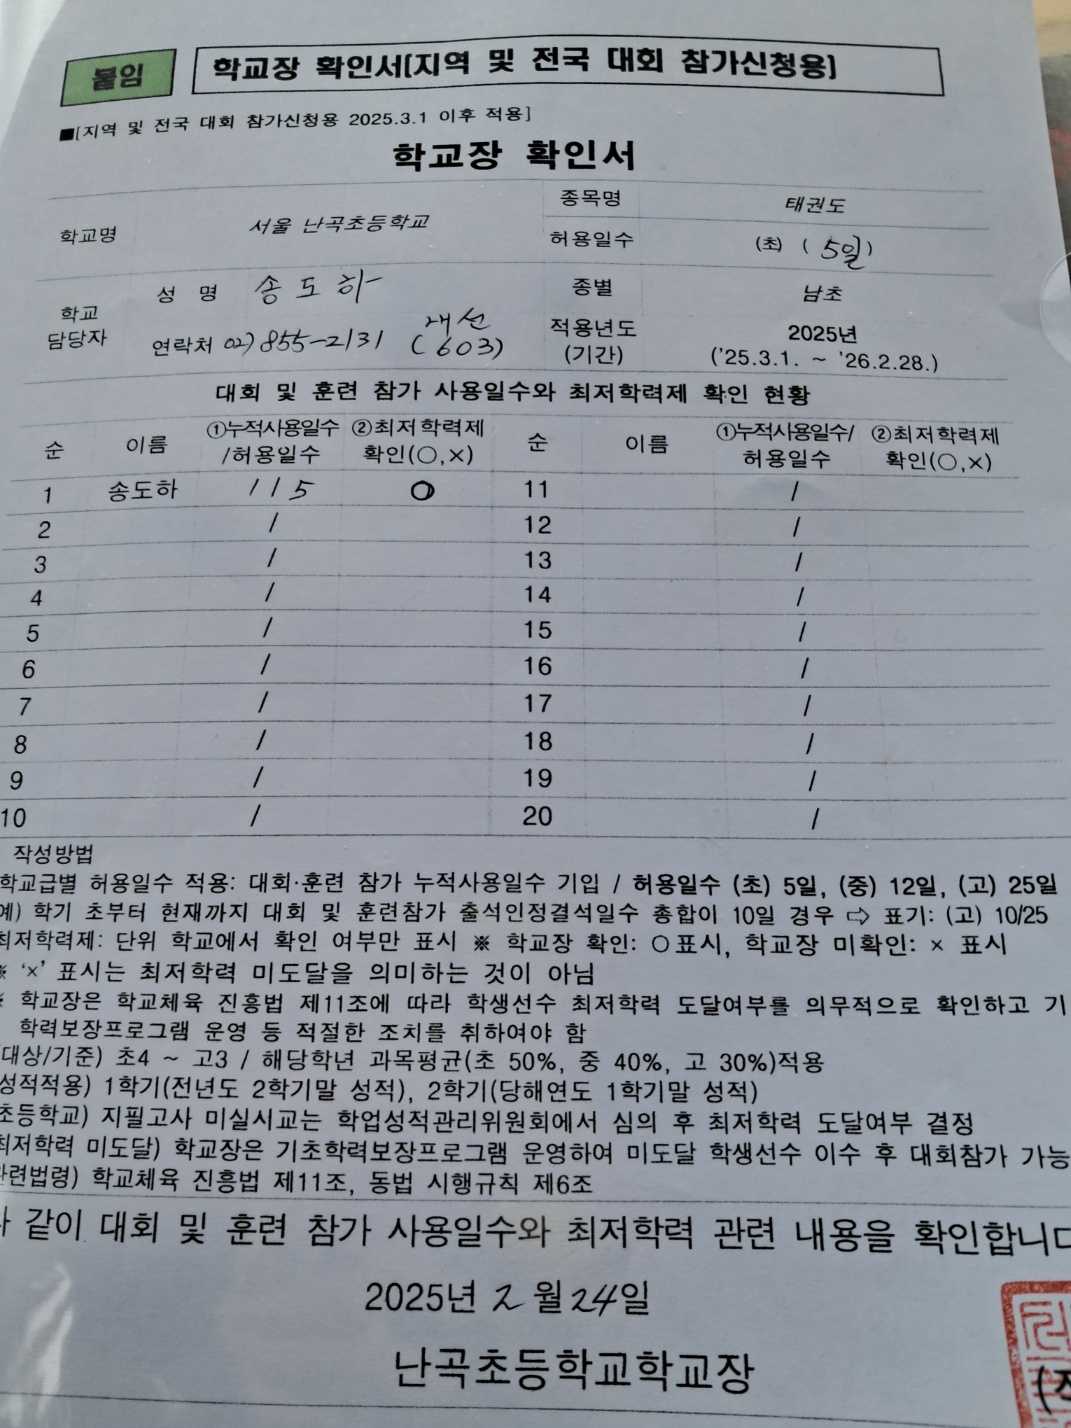 붙임 학교장 확인서[지역 및 전국 대회 참가신청용]
■[지역 및 전국 대회 참가신청용 2025.3.1 이후 적용]
학교장 확인서
학교명 서울 난곡초등학교 종목명 태권도
허용일수 (초) ( 5일)
학교 담당자 성 명 송도하 종별 남초
연락처 02) 855-2131 내선 (603) 적용년도 (기간) 2025년 ('25.3.1. ~ '26.2.28.)
대회 및 훈련 참가 사용일수와 최저학력제 확인 현황
순 이름 ①누적사용일수/허용일수 ②최저학력제 확인(○,×) 순 이름 ①누적사용일수/허용일수 ②최저학력제 확인(○,×)
1 송도하 1 / 5 O 11 /
2 / 12 /
3 / 13 /
4 / 14 /
5 / 15 /
6 / 16 /
7 / 17 /
8 / 18 /
9 / 19 /
10 / 20 /
작성방법
학교급별 허용일수 적용: 대회·훈련 참가 누적사용일수 기입 / 허용일수 (초) 5일, (중) 12일, (고) 25일
예) 학기 초부터 현재까지 대회 및 훈련참가 출석인정결석일수 총합이 10일 경우 ⇨ 표기: (고) 10/25
최저학력제: 단위 학교에서 확인 여부만 표시 ※ 학교장 확인: ○표시, 학교장 미확인: × 표시
※ '×' 표시는 최저학력 미도달을 의미하는 것이 아님
※ 학교장은 학교체육 진흥법 제11조에 따라 학생선수 최저학력 도달여부를 의무적으로 확인하고 기
학력보장프로그램 운영 등 적절한 조치를 취하여야 함
(대상/기준) 초4 ~ 고3 / 해당학년 과목평균(초 50%, 중 40%, 고 30%)적용
성적적용) 1학기(전년도 2학기말 성적), 2학기(당해연도 1학기말 성적)
초등학교) 지필고사 미실시교는 학업성적관리위원회에서 심의 후 최저학력 도달여부 결정
최저학력 미도달) 학교장은 기초학력보장프로그램 운영하여 미도달 학생선수 이수 후 대회참가 가능
관련법령) 학교체육 진흥법 제11조, 동법 시행규칙 제6조
같이 대회 및 훈련 참가 사용일수와 최저학력 관련 내용을 확인합니다
2025년 2월 24일
난곡초등학교학교장